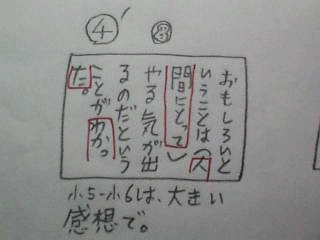 ④'
おもしろいと
いうことは(人
間にとって)
やる気が出
るのだという
ことがわかっ
た。
小5-小6は、大きい
感想で。